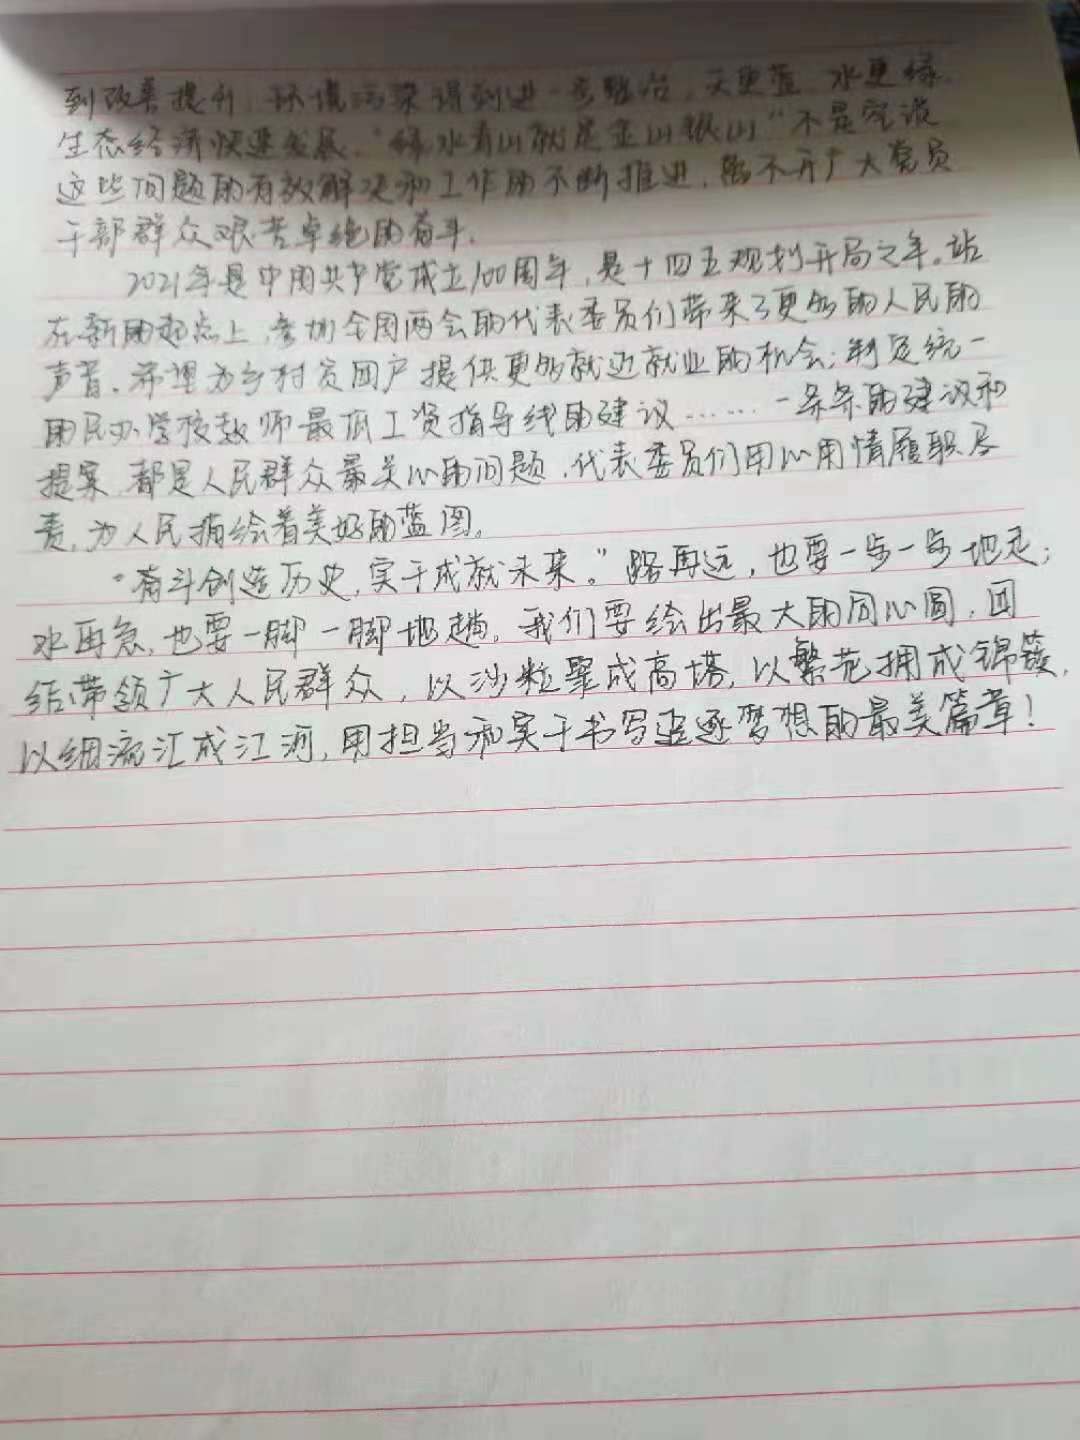 到改善提升,环境污染得到进一步整治,天更蓝,水更绿,
生态经济快速发展,“绿水青山就是金山银山”不是空谈
这些问题的有效解决和工作的不断推进,离不开广大党员
干部群众艰苦卓绝的奋斗.
2021年是中国共产党成立100周年,是十四五规划开局之年。站
在新的起点上,参加全国两会的代表委员们带来了更多的人民的
声音,希望为乡村贫困户提供更多就近就业的机会;制定统一
的民办学校教师最低工资指导线的建议……一条条的建议和
提案,都是人民群众最关心的问题,代表委员们用心用情履职尽
责,为人民描绘着美好的蓝图。
“奋斗创造历史,实干成就未来。”路再远,也要一步一步地走;
水再急,也要一脚一脚地趟。我们要绘出最大的同心圆,团
结带领广大人民群众,以沙粒聚成高塔,以繁花拥成锦簇,
以细流汇成江河,用担当和实干书写追逐梦想的最美篇章!